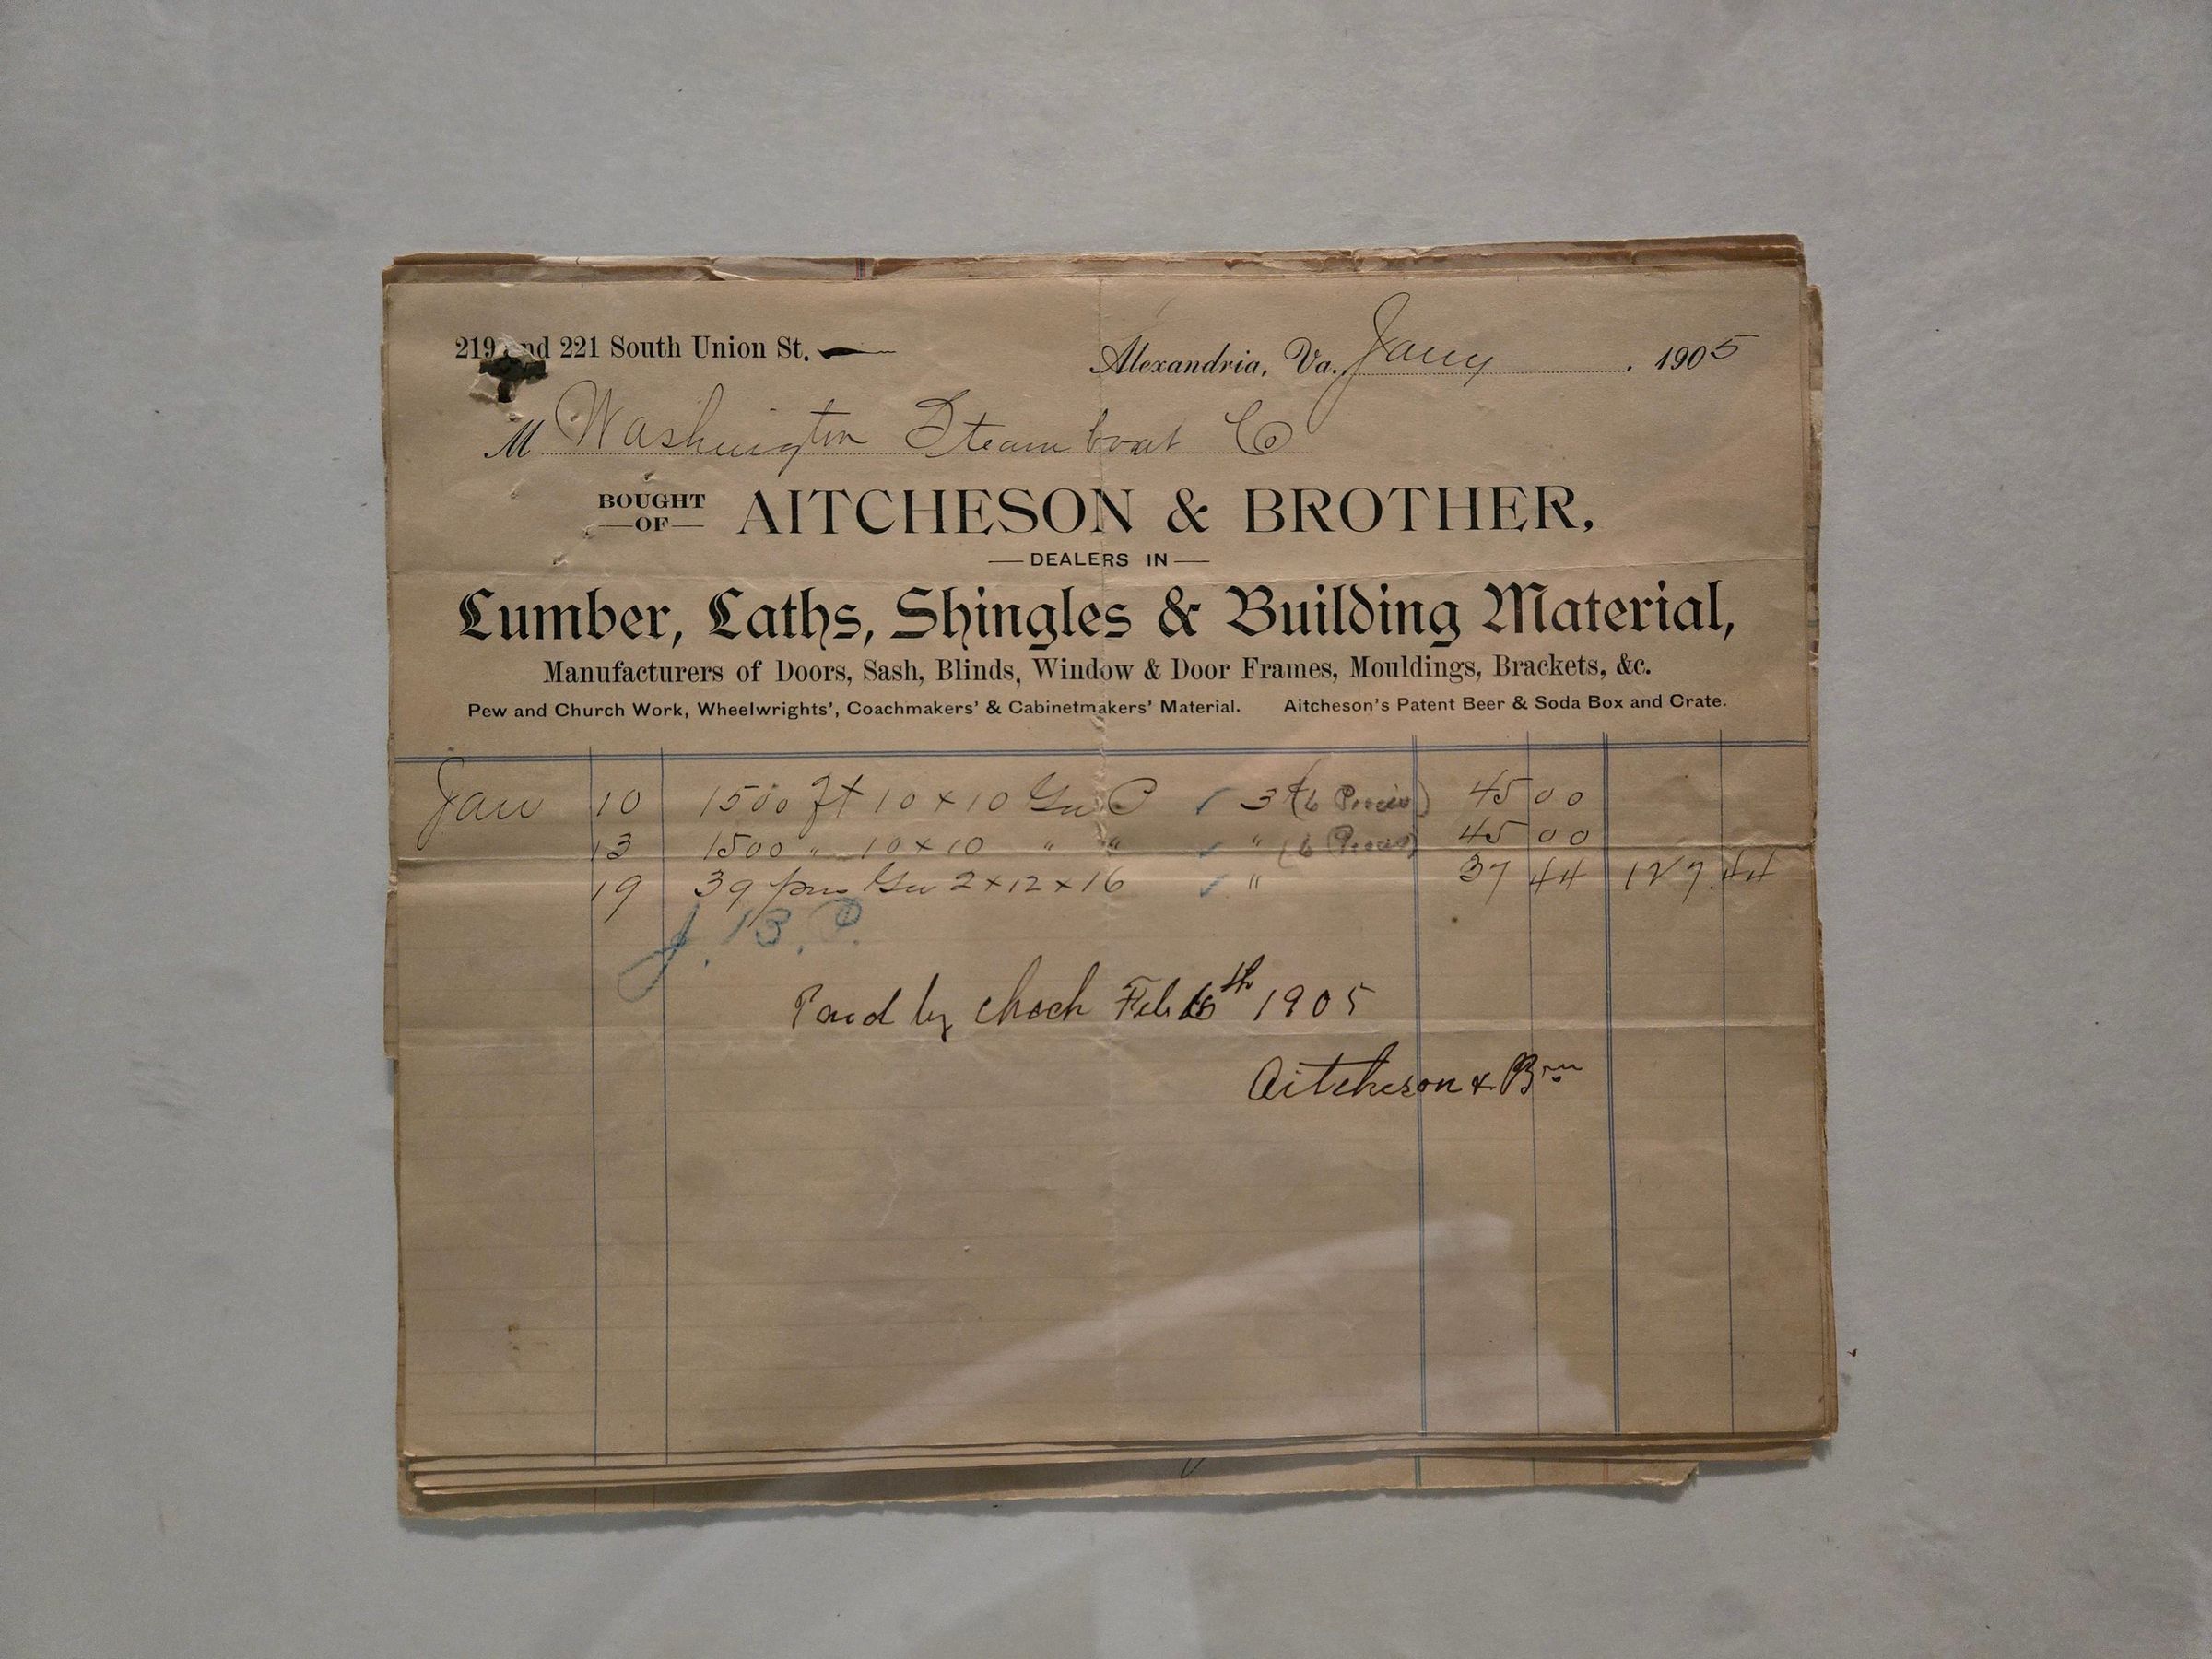 219 and 221 South Union St. Alexandria, Va., Jany 1905
M Washington Steam boat Co
BOUGHT OF AITCHESON & BROTHER,
DEALERS IN
Lumber, Laths, Shingles & Building Material,
Manufacturers of Doors, Sash, Blinds, Window & Door Frames, Mouldings, Brackets, &c.
Pew and Church Work, Wheelwrights', Coachmakers' & Cabinetmakers' Material. Aitcheson's Patent Beer & Soda Box and Crate.
Jan 10 1500 ft 10 x 10 3 (6 Pieces) 45 00
13 1500 " 10 x 10 " " " (6 Pieces) 45 00
19 39 2 x 12 x 16 " 37 44 127.44
J. B. P.
Paid by check Feb 6th 1905
Aitcheson & Bro